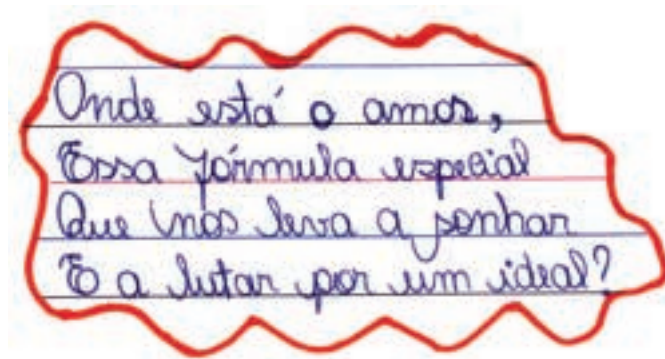 Onde está o amor,
Essa fórmula especial
Que nos leva a sonhar
E a lutar por um ideal?